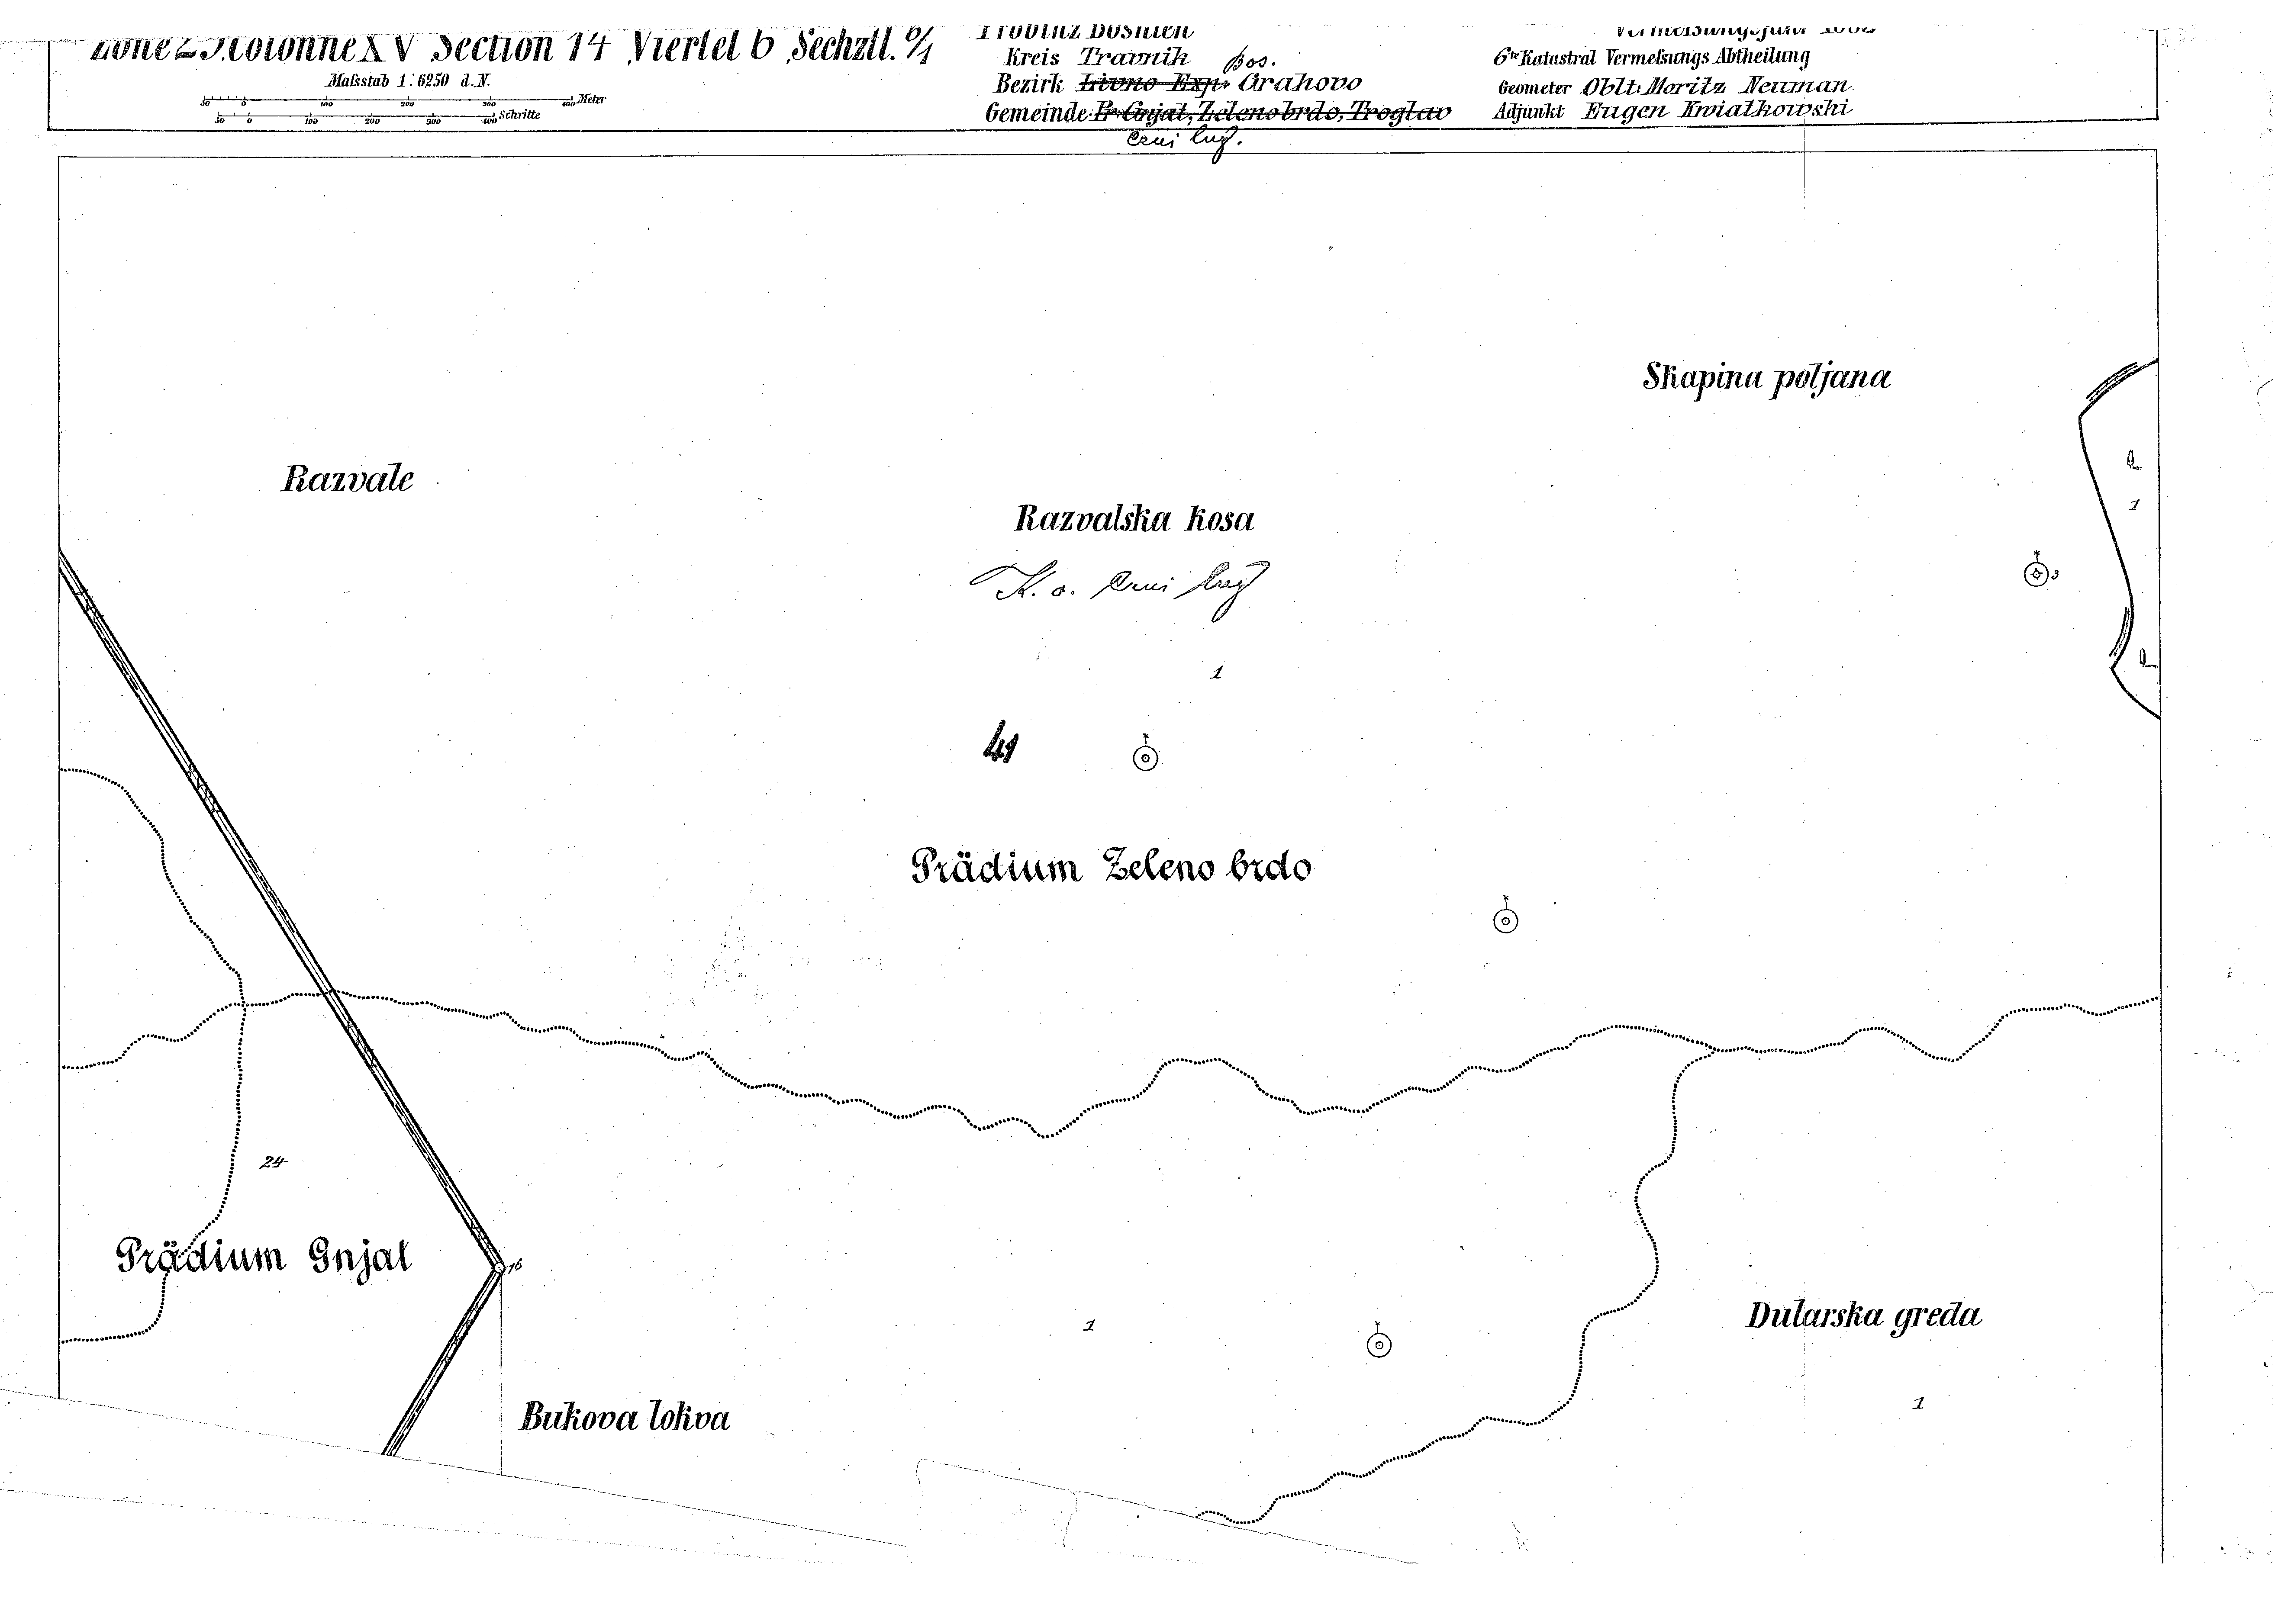 Zone 29 Kolonne XV Section 14 Viertel b Sechztl. d/1
Maſsstab 1:6250 d.N.
50 0 100 200 300 400 Meter
50 0 100 200 300 400 Schritte
Provinz Bosnien
Kreis Travnik Bos.
Bezirk Livno Exp. Grahovo
Gemeinde: Pr. Gnjat, Zeleno brdo, Troglav
Crni lug.
Vermeſsungsjahr 1882
6te Katastral Vermeſsungs Abtheilung
Geometer Oblt: Moritz Neuman
Adjunkt Eugen Kwiatkowski
Skapina poljana
Razvale
1
Razvalska kosa
3
K. o. Crni lug
1
41
Prädium Zeleno brdo
24
Prädium Gnjat
16
1
Dularska greda
1
Bukova lokva